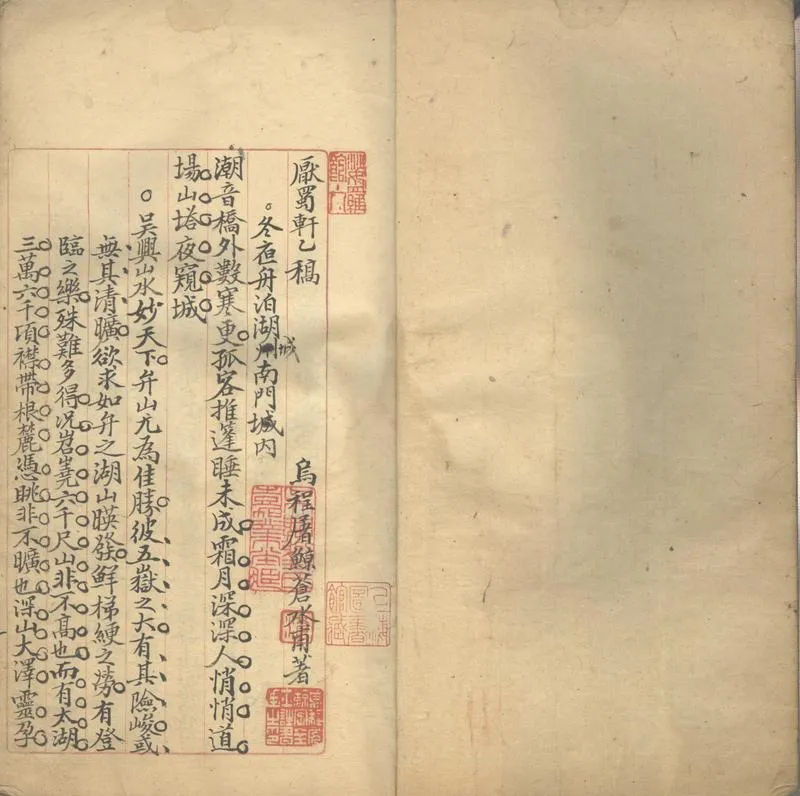 厭蜀軒乙稿
烏程屠鯨蒼水甫著
冬夜舟泊湖州南門城内
城
潮音橋外數寒更孤客推篷睡未成霜月深深人悄悄道
場山塔夜窺城
吳興山水妙天下弁山尤為佳勝彼五嶽之大有其險峻或
無其清曠欲求如弁之湖山暎發鮮梯綆之勞有登
臨之樂殊難多得况岧嶤六千尺山非不髙也而有太湖
三萬六千項襟帶根麓憑眺非不曠也深山大澤靈孕